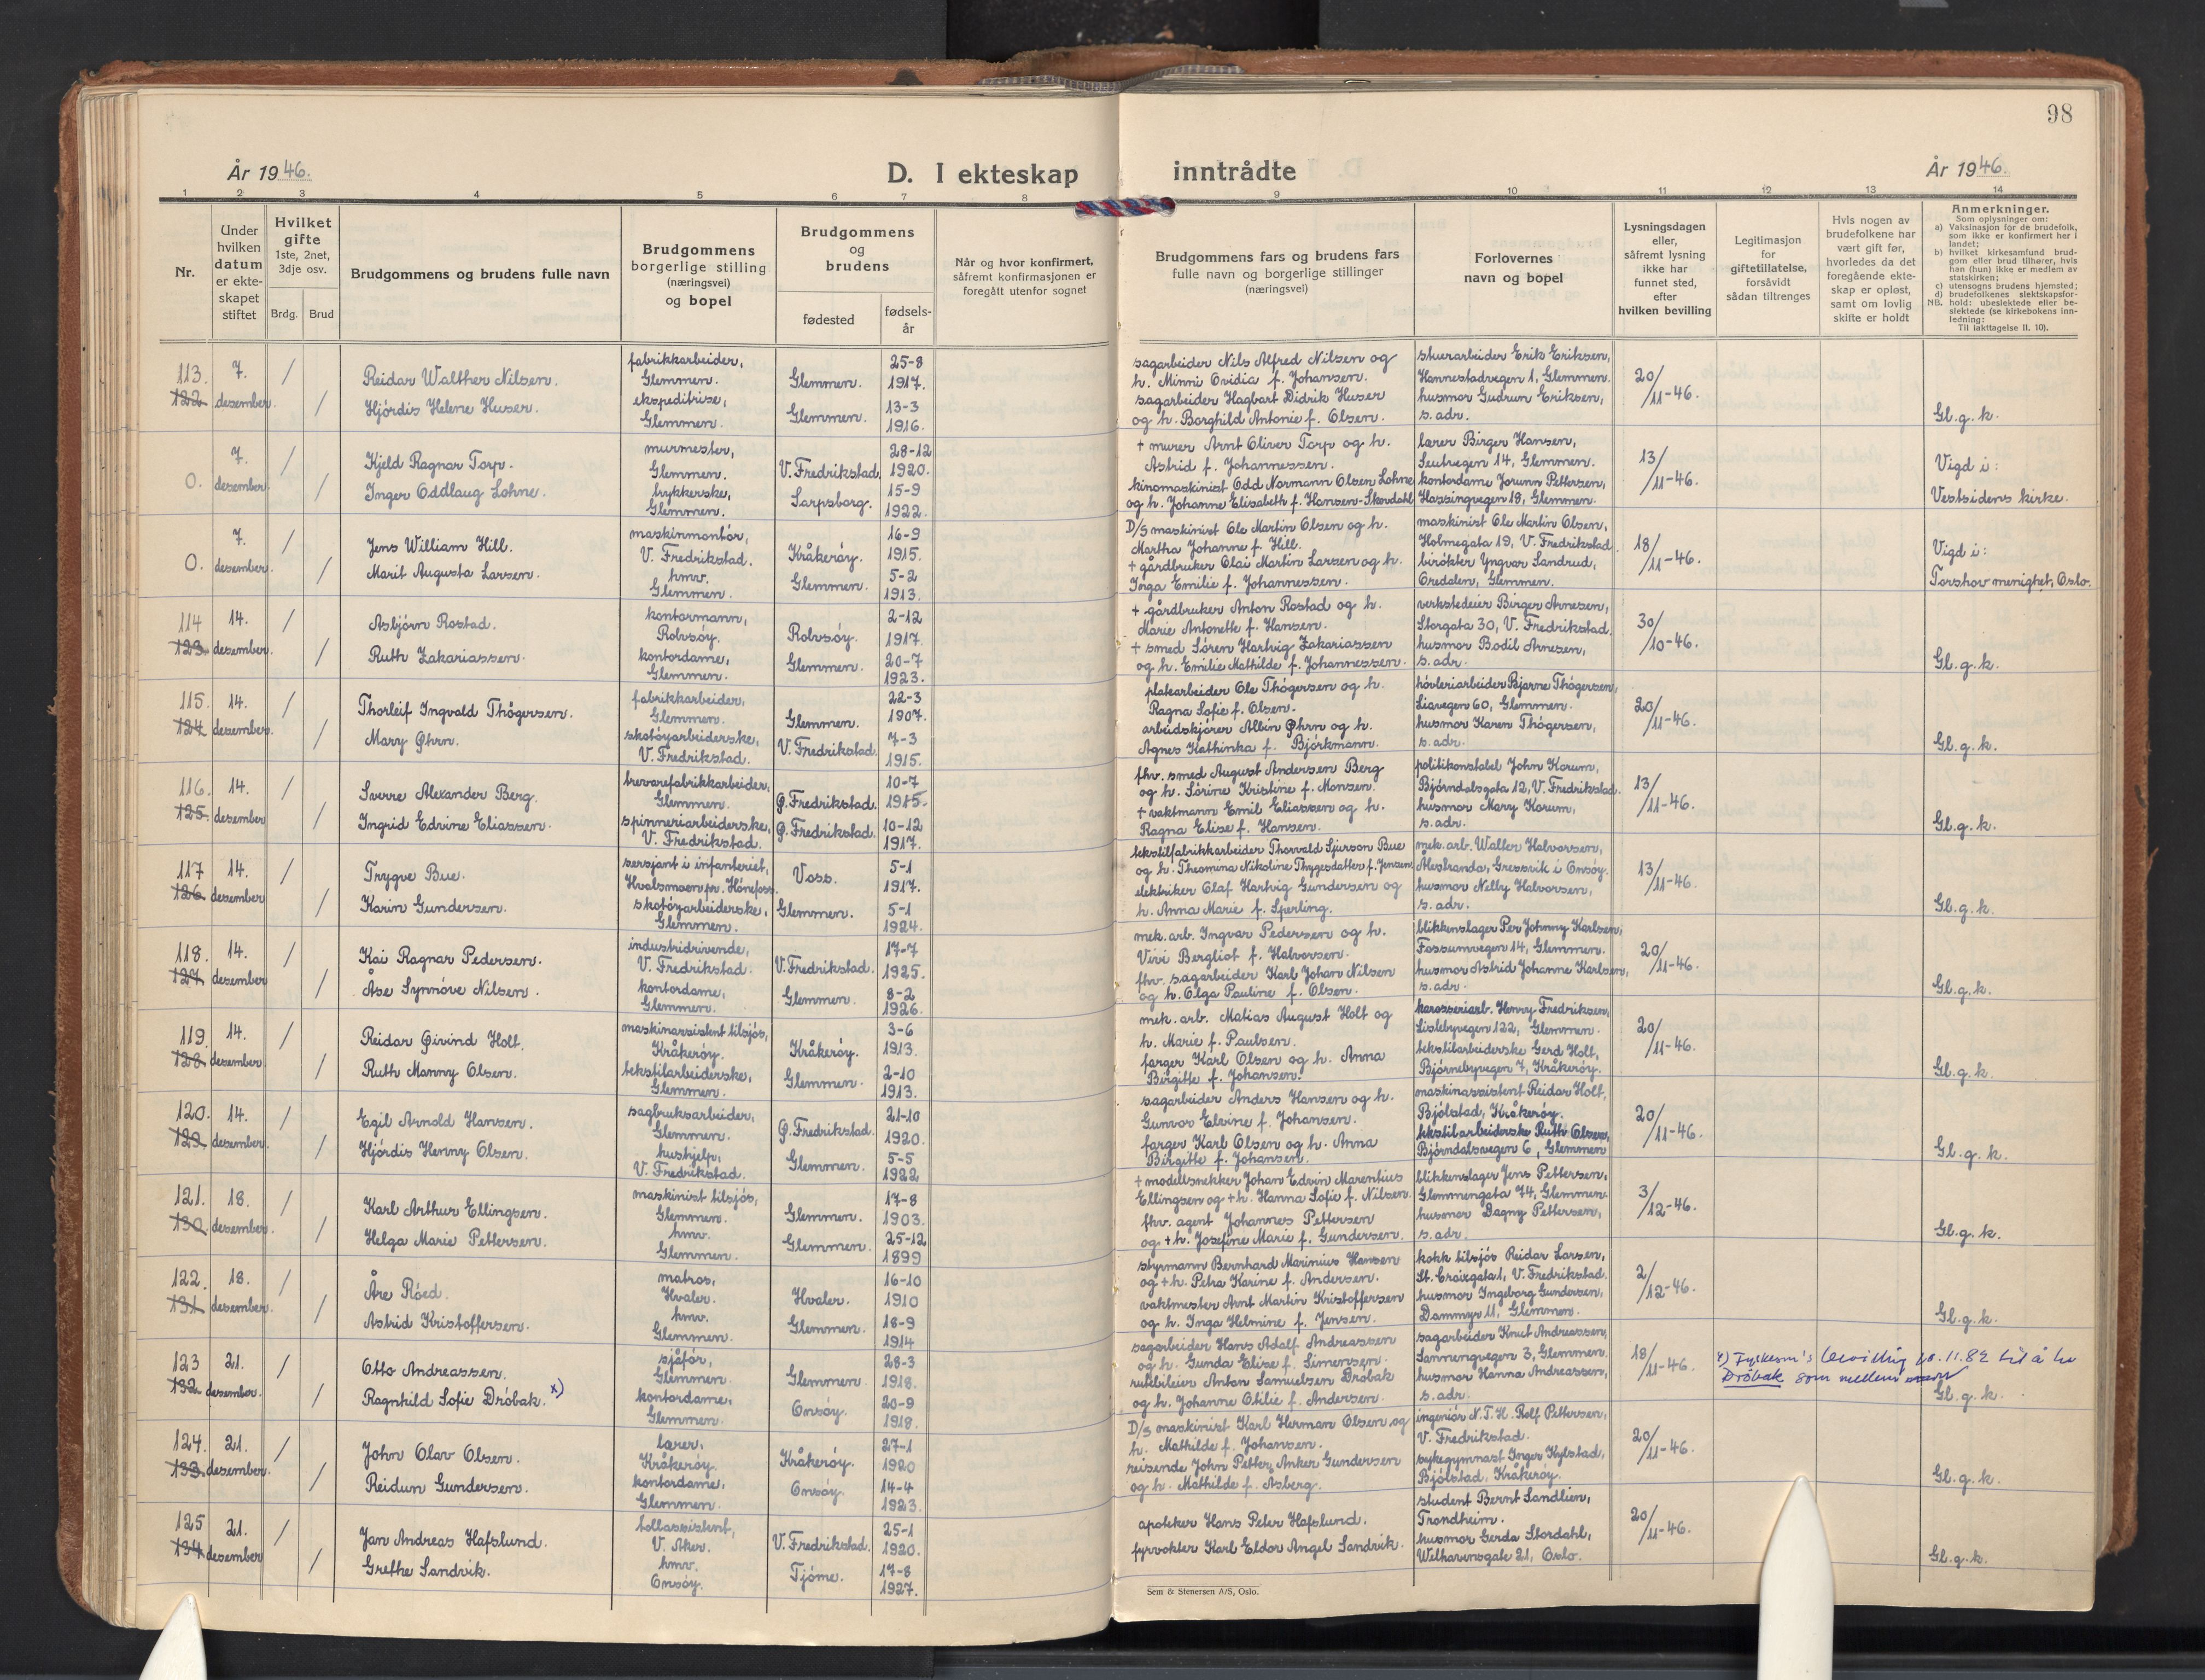 98
År 1946.
D. I ekteskap inntrådte
År 1946.
1 2 3 4 5 6 7 8 9 10 11 12 13 14
Nr.
Under hvilken datum er ekte- skapet stiftet
Hvilket gifte
1ste, 2net, 3dje osv.
Brdg. Brud
Brudgommens og brudens fulle navn
Brudgommens borgerlige stilling (næringsvei) og bopel
Brudgommens og brudens
fødested
fødsels- år
Når og hvor konfirmert, såfremt konfirmasjonen er foregått utenfor sognet
Brudgommens fars og brudens fars fulle navn og borgerlige stillinger (næringsvei)
Forlovernes navn og bopel
Lysningsdagen eller, såfremt lysning ikke har funnet sted, efter hvilken bevilling
Legitimasjon for giftetillatelse, forsåvidt sådan tiltrenges
Hvis nogen av brudefolkene har vært gift før, hvorledes da det foregående ekte- skap er opløst, samt om lovlig skifte er holdt
Anmerkninger.
Som oplysninger om:
a) Vaksinasjon for de brudefolk, som ikke er konfirmert her i landet;
b) hvilket kirkesamfund brud- gom eller brud tilhører, hvis han (hun) ikke er medlem av statskirken;
c) utensogns brudens hjemsted;
d) brudefolkenes slektskapsfor- hold: ubeslektede eller be- slektede (se kirkebokens inn- ledning:
NB. Til iakttagelse II. 10).
113. 122 7. desember / /
Reidar Walther Nilsen.
Hjördis Helene Huser.
fabrikkarbeider, Glemmen.
ekspeditrise, Glemmen.
Glemmen. 25-8 1917.
Glemmen. 13-3 1916.
sagarbeider Nils Alfred Nilsen og
h. Minni Ovidia f. Johansen.
sagarbeider Hagbart Didrik Huser
og h. Borghild Antonie f. Olsen.
stuerarbeider Erik Eriksen,
Hannestadvegen 1, Glemmen.
husmor Gudrun Eriksen,
s. adr.
20/11-46.
Gl. g. k.
0. 7. desember / /
Kjeld Ragnar Torp.
Inger Oddlaug Lohne.
murmester, Glemmen.
trykkerske, Glemmen.
V. Fredrikstad. 28-12 1920.
Sarpsborg. 15-9 1922.
+ murer Arnt Oliver Torp og h.
Astrid f. Johannessen.
kinomaskinist Odd Normann Olsen Lohne
og h. Johanne Elisabeth f. Hansen-Skovdahl
lærer Birger Hansen,
Seutvegen 14, Glemmen.
kontordame Jorunn Pettersen,
Hassingvegen 18, Glemmen.
13/11-46.
Vigd i:
Vestsidens kirke.
0. 7. desember / /
Jens William Hill.
Marit Augusta Larsen.
maskinmontör, V. Fredrikstad.
hmv. Glemmen.
Kråkeröy. 16-9 1915.
Glemmen. 5-2 1913.
D/S maskinist Ole Martin Olsen og h.
Martha Johanne f. Hill.
+ gårdbruker Olai Martin Larsen og h.
Inga Emilie f. Johannessen.
maskinist Ole Martin Olsen,
Holmegata 19, V. Fredrikstad.
birökter Yngvar Sandrud,
Oredalen, Glemmen.
18/11-46.
Vigd i:
Torshov menighet, Oslo.
114 123 14. desember. / /
Asbjörn Rostad.
Ruth Zakariassen.
kontormann, Rolvsöy.
kontordame, Glemmen.
Rolvsöy. 2-12 1917.
Glemmen. 20-7 1923.
+ gårdbruker Anton Rostad og h.
Marie Antonette f. Hansen.
+ smed Sören Hartvig Zakariassen
og h. Emilie Mathilde f. Johannessen.
verkstedeier Birger Arnesen,
Storgata 30, V. Fredrikstad.
husmor Bodil Arnesen,
s. adr.
30/10-46.
Gl. g. k.
115. 124 14. desember. / /
Thorleif Ingvald Thögersen.
Mary Øhrn.
fabrikkarbeider, Glemmen.
skotöyarbeiderske, V. Fredrikstad.
Glemmen. 22-3 1907.
V. Fredrikstad. 7-3 1915.
platearbeider Ole Thögersen og h.
Ragna Sofie f. Olsen.
arbeidskjörer Albin Øhrn og h.
Agnes Kathinka f. Björkmann.
hövleriarbeider Bjarne Thögersen,
Liavegen 60, Glemmen.
husmor Karen Thögersen,
s. adr.
20/11-46.
Gl. g. k.
116. 125 14. desember / /
Sverre Alexander Berg.
Ingrid Edvine Eliassen.
trevarefabrikkarbeider, Glemmen.
spinneriarbeiderske, V. Fredrikstad.
Ø. Fredrikstad. 10-7 1915.
Ø. Fredrikstad. 10-12 1917.
fhv. smed August Andersen Berg
og h. Sörine Kristine f. Monsen.
+ vaktmann Emil Eliassen og h.
Ragna Elise f. Hansen.
politikonstabel John Korum,
Björndalsgata 12, V. Fredrikstad.
husmor Mary Korum,
s. adr.
13/11-46.
Gl. g. k.
117 126 14. desember / /
Trygve Bue.
Karin Gundersen.
sersjant i infanteriet, Hvalsmoen pr. Hönefoss.
skotöyarbeiderske, Glemmen.
Voss. 5-1 1917.
Glemmen. 5-1 1924.
tekstilfabrikkarbeider Thorvald Sjurson Bue
og h. Theomina Nikoline Thygesdatter f. Jensen.
elektriker Olaf Hartvig Gundersen og
h. Anna Marie f. Sperling.
mek. arb. Walter Halvorsen,
Ålestranda, Gressvik i Onsöy.
husmor Nelly Halvorsen,
s. adr.
13/11-46.
Gl. g. k.
118. 127 14. desember / /
Kai Ragnar Pedersen.
Åse Synnöve Nilsen.
industridrivende, V. Fredrikstad.
kontordame, Glemmen.
V. Fredrikstad. 17-7 1925.
Glemmen. 8-2 1926.
mek. arb. Ingvar Pedersen og h.
Vivi Bergliot f. Halvorsen.
fhv. sagarbeider Karl Johan Nilsen
og h. Olga Pauline f. Olsen.
blikkenslager Per Johnny Karlsen,
Fossumvegen 14, Glemmen.
husmor Astrid Johanne Karlsen,
s. adr.
20/11-46.
Gl. g. k.
119. 128 14. desember. / /
Reidar Øivind Holt.
Ruth Manny Olsen.
maskinassistent tilsjös, Kråkeröy.
tekstilarbeiderske, Glemmen.
Kråkeröy. 3-6 1913.
Glemmen. 2-10 1913.
mek. arb. Matias August Holt og
h. Marie f. Paulsen.
farger Karl Olsen og h. Anna
Birgitte f. Johansen.
karosseriarb. Henry Fredriksen,
Lislebyvegen 122, Glemmen.
tekstilarbeiderske Gerd Holt,
Björnebyvegen 7, Kråkeröy.
20/11-46.
Gl. g. k.
120. 129 14. desember. / /
Egil Arnold Hansen.
Hjördis Henny Olsen.
sagbruksarbeider, Glemmen.
hushjelp, V. Fredrikstad.
Ø. Fredrikstad. 21-10 1920.
Glemmen. 5-5 1922
sagarbeider Anders Hansen og h.
Gunvor Elvine f. Johansen.
farger Karl Olsen og h. Anna
Birgitte f. Johansen.
maskinassistent Reidar Holt,
Bjölstad, Kråkeröy.
tekstilarbeiderske Ruth Olsen,
Björndalsvegen 6, Glemmen
20/11-46.
Gl. g. k.
121. 130 18. desember. / /
Karl Arthur Ellingsen.
Helga Marie Pettersen.
maskinist tilsjös, Glemmen.
hmv. Glemmen.
Glemmen. 17-8 1903.
Glemmen. 25-12 1899
+ modellsnekker Johan Edvin Marentius
Ellingsen og +h. Hanna Sofie f. Nilsen.
fhv. agent Johannes Pettersen
og +h. Josefine Marie f. Gundersen.
blikkenslager Jens Pettersen,
Glemmengata 74, Glemmen.
husmor Dagny Pettersen,
s. adr.
3/12-46.
Gl. g. k.
122. 131 18. desember. / /
Åre Röed.
Astrid Kristoffersen.
matros, Hvaler.
hmv. Glemmen.
Hvaler. 16-10 1910
Glemmen. 18-9 1914
styrmann Bernhard Marinius Hansen
og +h. Petra Karine f. Andersen.
vaktmester Arnt Martin Kristoffersen
og h. Inga Helmine f. Jensen.
kokk tilsjös Reidar Larsen,
St. Croixgata 1, V. Fredrikstad.
husmor Ingeborg Gundersen,
Dammyr 11, Glemmen.
2/12-46.
Gl. g. k.
123 132 21. desember. / /
Otto Andreassen.
Ragnhild Sofie Dröbak. x)
sjåför, Glemmen.
kontordame, Glemmen.
Glemmen. 28-3 1918.
Onsöy. 20-9 1918.
sagarbeider Hans Adolf Andreassen
og h. Gunda Elise f. Simensen.
rutebileier Anton Samuelsen Dröbak
og h. Johanne Otilie f. Andersen.
sagarbeider Knut Andreassen,
Sannengvegen 3, Glemmen.
husmor Hanna Andreassen,
s. adr.
18/11-46.
bevilling 18.11.82 til å ha
Dröbak som mellomnavn
Gl. g. k.
124. 133 21. desember. / /
John Olav Olsen.
Reidun Gundersen.
lærer, Kråkeröy.
kontordame, Glemmen.
Kråkeröy. 27-1 1920
Onsöy. 14-4 1923.
D/S maskinist Karl Herman Olsen og
h. Mathilde f. Johansen.
reisende John Petter Anker Gundersen
og h. Mathilde f. Asberg.
ingeniör N.T.H. Rolf Pettersen,
V. Fredrikstad.
sykegymnast Inger Kylstad,
Bjölstad, Kråkeröy.
20/11-46.
Gl. g. k.
125 134 21. desember / /
Jan Andreas Hafslund.
Grethe Sandvik.
tollassistent, V. Aker.
hmv. Onsöy.
V. Fredrikstad. 25-1 1920.
Tjöme. 17-8 1927.
apoteker Hans Peter Hafslund.
fyrvokter Karl Eldor Angel Sandvik.
student Bernt Sandlien,
Trondheim.
husmor Gerda Stordahl,
Welhavensgate 21, Oslo.
20/11-46.
Gl. g. k.
Sem & Stenersen A/S, Oslo.